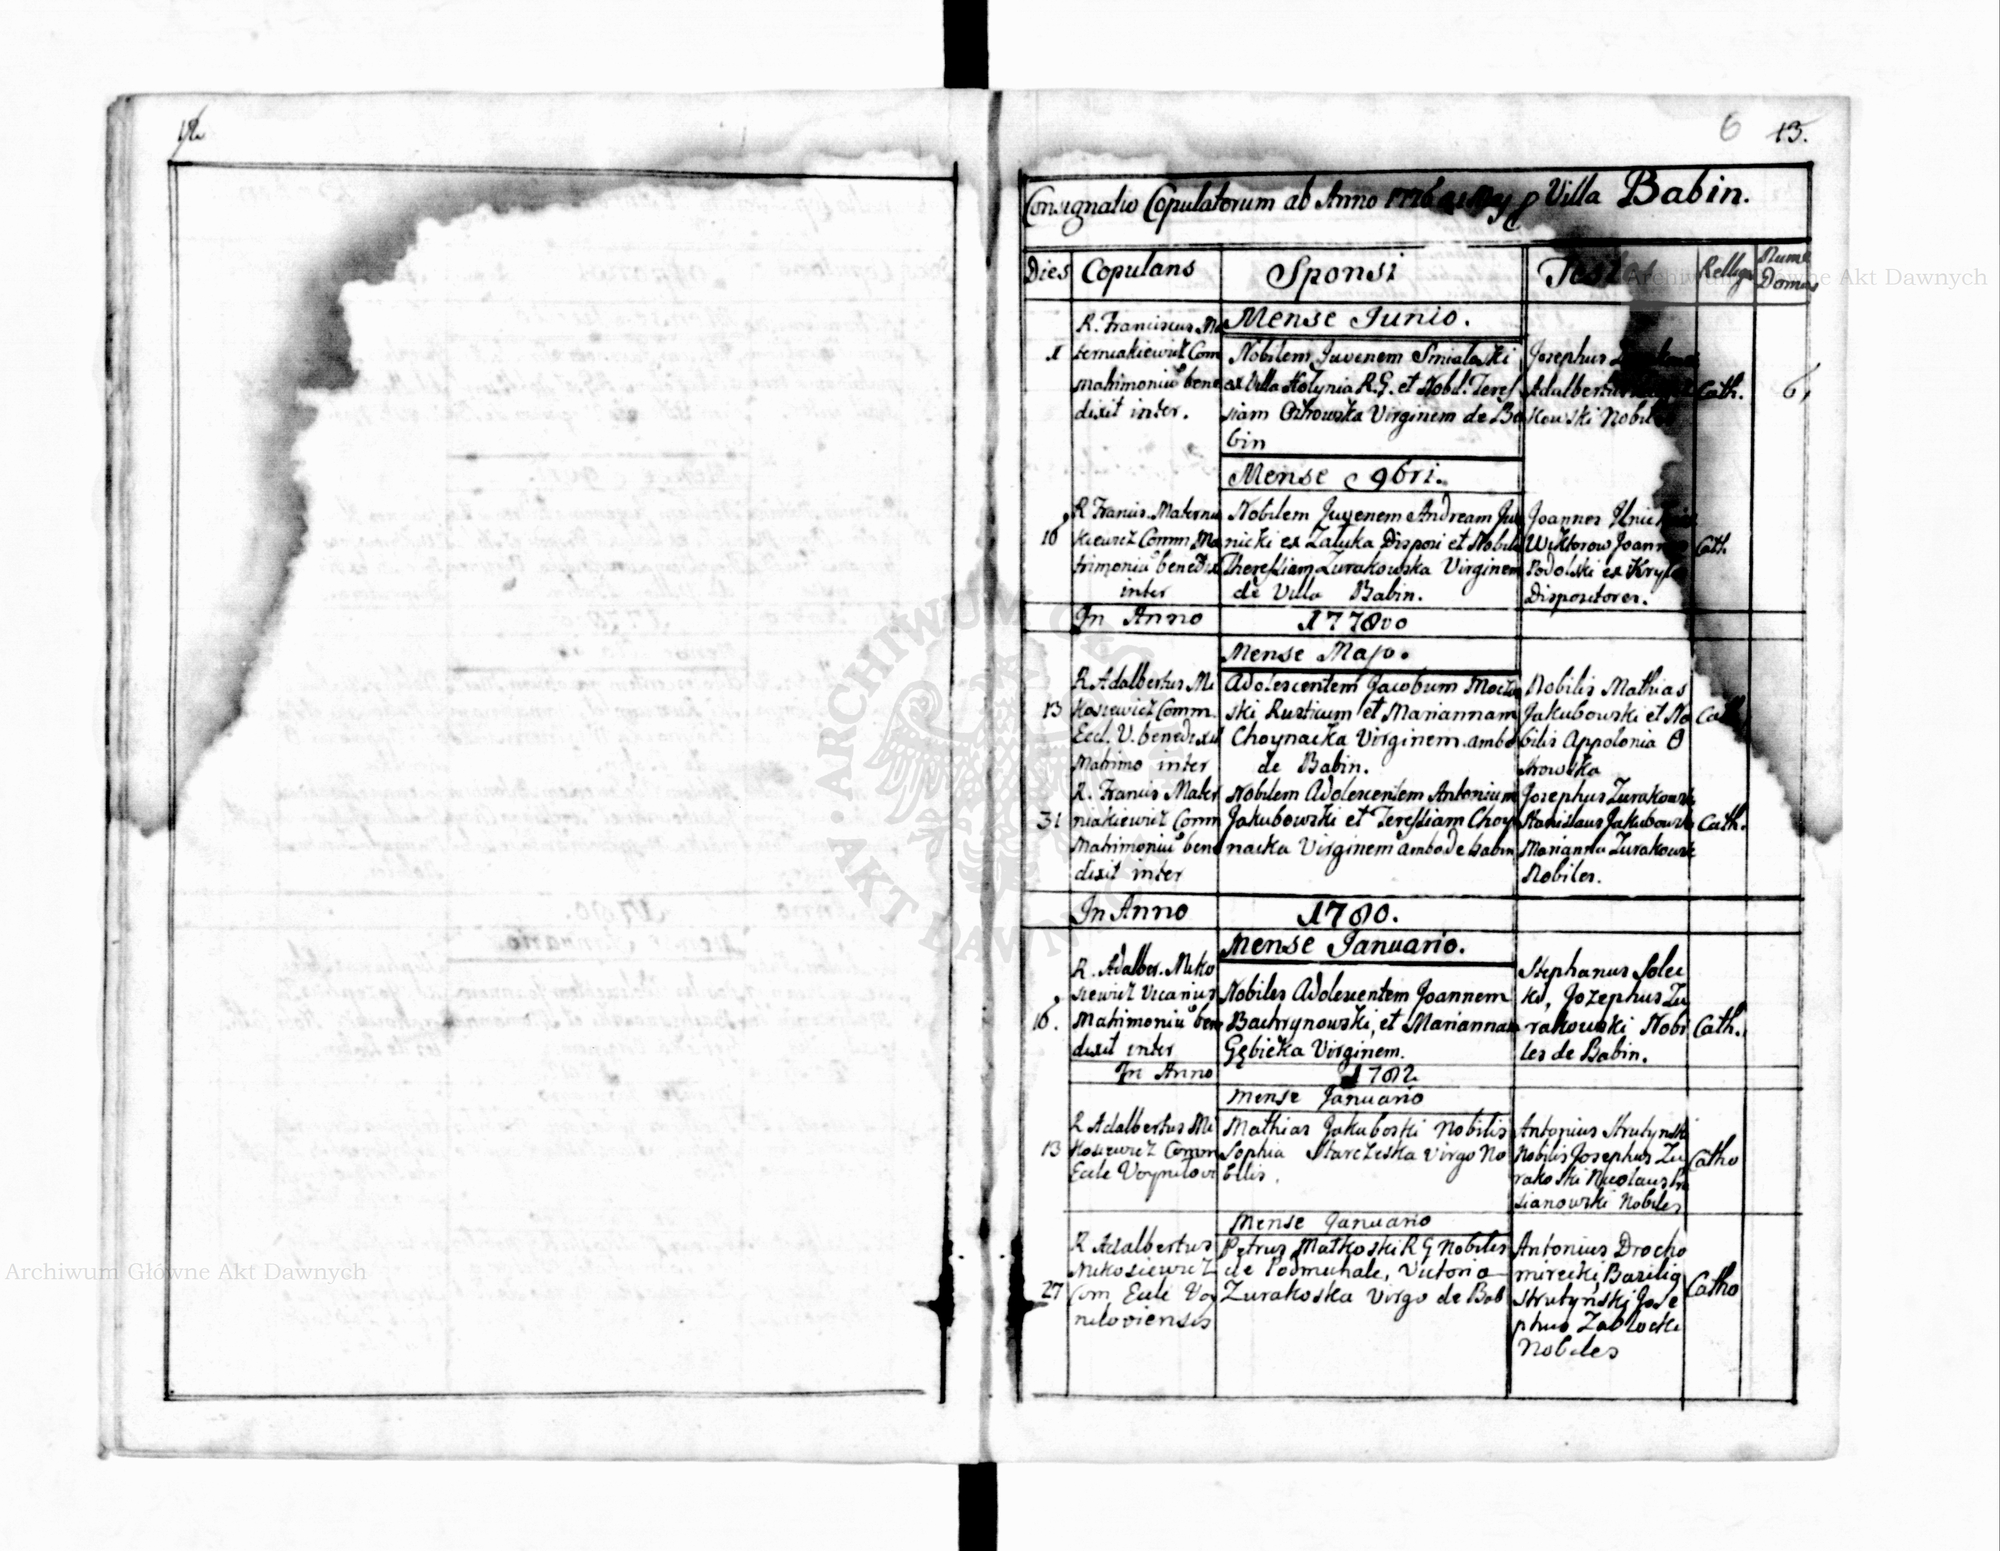 6 13.
Consignatio Copulatorum ab Anno 1776 Villa Babin.
Dies Copulans Sponsi Test Religio Num
Domus
Mense Junio.
R. Franciscus Ma
terniakiewicz Com
matrimoniū bene
dixit inter.
1
Nobilem Juvenem Smialoski
ex Villa Hołynia R.G. et Nobil. Teres
siam Ostrowska Virginem de Ba
bin
Josephus
Adalbertus
kowski Nobil
Cath.
6
Mense 9bri.
R Francis. Maternia
kiewicz Comm Ma
trimoniū benedix
inter
16
Nobilem Juvenem Andream Ju
nicki ex Zaluka Dispori et Nobile
Theressiam Zurakowska Virginem
de Villa Babin.
Joannes
Wiktorow Joannes
Podolski ex Kryl
Dispositores.
Cath
In Anno 1778vo
Mense Majo.
R. Adalbertus Mi
kosiewicz Comm.
Eccl. V. benedixit
Matrimo inter
13
Adolescentem Jacobum Mocze
ski Rusticum et Mariannam
Choynacka Virginem ambo
de Babin.
Nobilis Mathias
Jakubowski et No
bilis Appolonia O
strowska
Cath
R. Francis Mater
niakiewicz Comm
Matrimoniū bene
dixit inter
31
Nobilem Adolescentem Antonium
Jakubowski et Teressiam Choy
nacka Virginem ambo de babin
Josephus Zurakowski
Stanislaus Jakubowski
Marianna Zurakowsk
Nobiles.
Cath.
In Anno 1780.
Mense Januario.
R. Adalber. Miko
siewicz Vicarius
Matrimoniū bene
dixit inter
16.
Nobiles Adolescentem Joannem
Bachrynowski, et Mariannam
Gębicka Virginem.
Stephanus Solec
ki, Jozephus Zu
rakowski Nobi
les de Babin.
Cath.
In Anno 1782
Mense Januario
R Adalbertus Mi
kosiewicz Comm
Ecclē Voyniłovi
13
Mathias Jakuboski Nobilis
Sophia Starczeska Virgo No
bilis.
Antonius Strutynski
Nobilis Josephus Zu
rakoski Nicolaus
sianowski Nobiles
Catho
Mense Januario
R Adalbertus
Mikosiewicz
Com Ecclē Voy
niloviensis
27
Petrus Małkoski R G Nobilis
de Podmichale, Victoria
Zurakoska Virgo de Bab
Antonius Drocho
mirecki, Basilig
Strutyński Jose
phus Zabłocki
Nobiles
Catho
Archiwum Główne Akt Dawnych
Archiwum Główne Akt Dawnych
ARCHIWUM GŁÓWNE AKT DAWNYCH